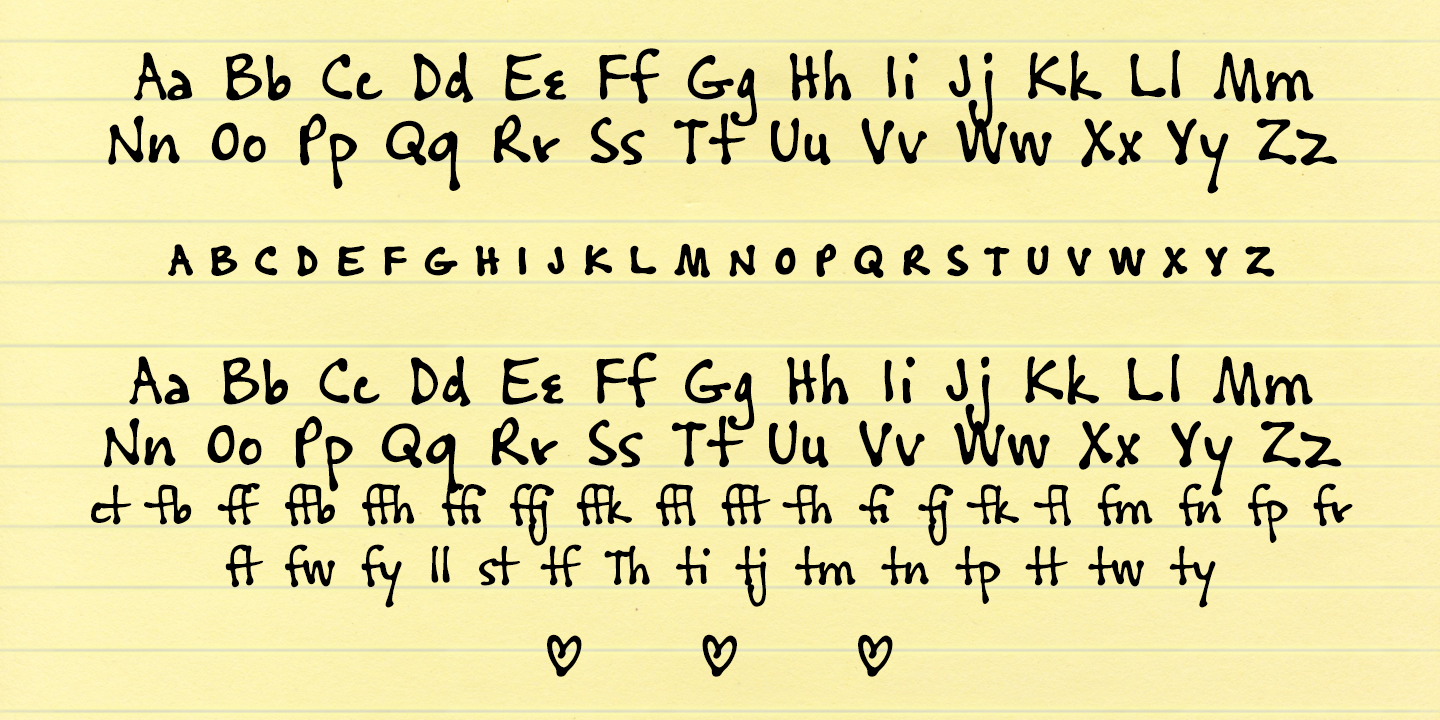 Aa Bb Cc Dd Ee Ff Gg Hh Ii Jj Kk Ll Mm
Nn Oo Pp Qq Rr Ss Tt Uu Vv Ww Xx Yy Zz
A B C D E F G H I J K L M N O P Q R S T U V W X Y Z
Aa Bb Cc Dd Ee Ff Gg Hh Ii Jj Kk Ll Mm
Nn Oo Pp Qq Rr Ss Tt Uu Vv Ww Xx Yy Zz
ct fb ff ffb ffh ffi ffj ffk ffl fft fh fi fj fk fl fm fn fp fr
ft fw fy ll st tf Th ti tj tm tn tp tt tw ty
♡ ♡ ♡